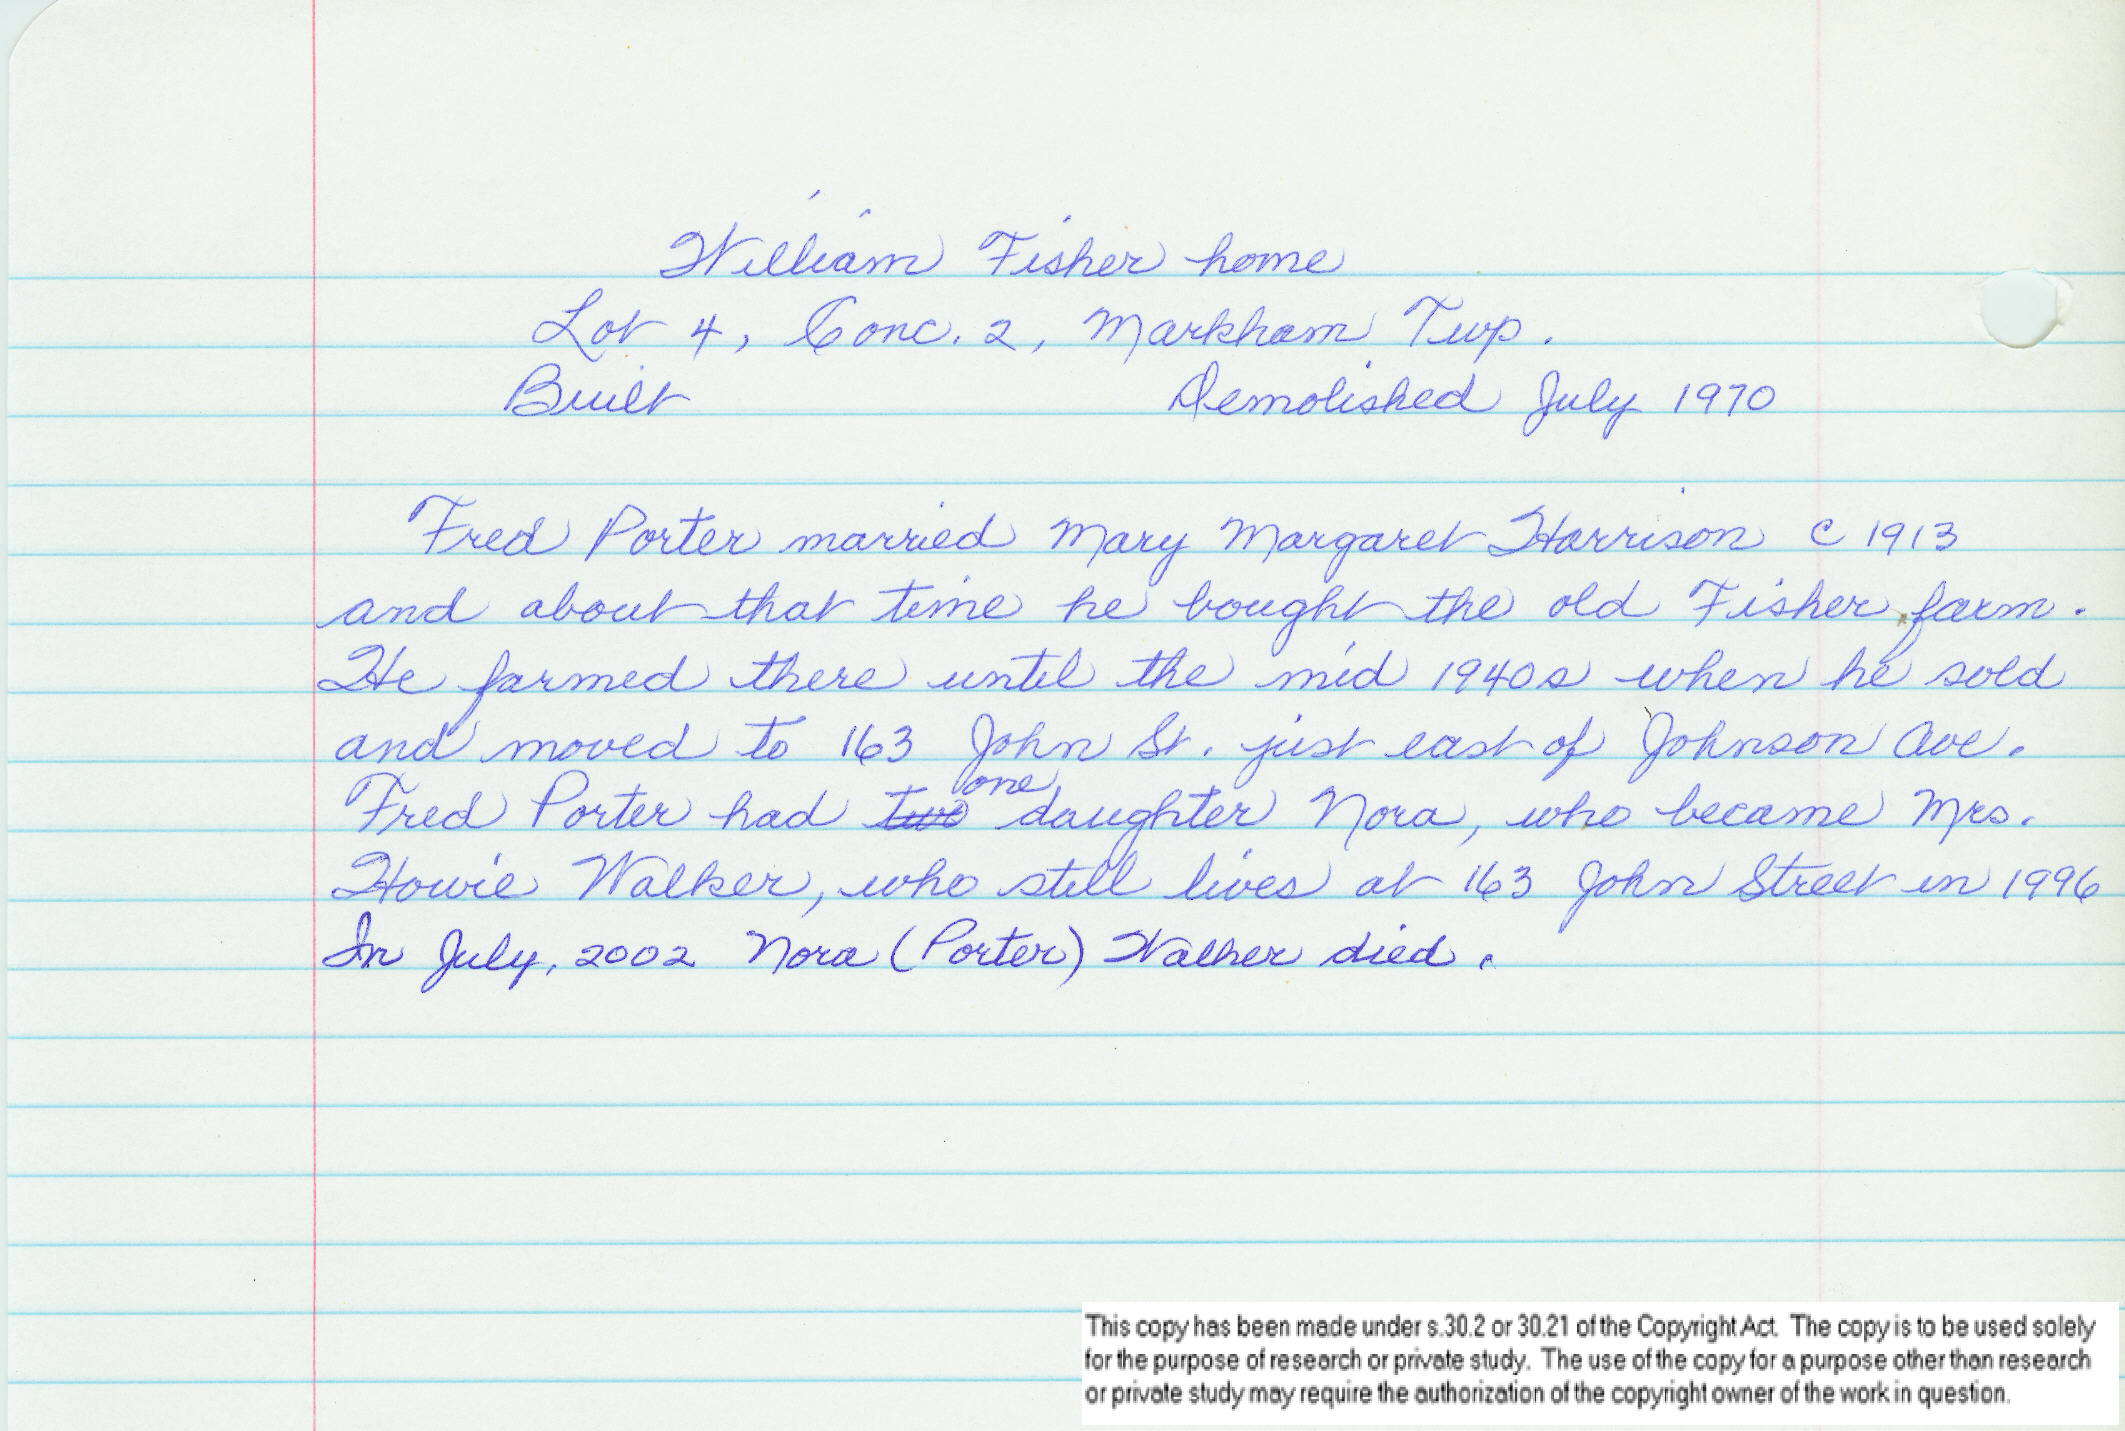 William Fisher home
Lot 4, Conc. 2, Markham Twp.
Built Demolished July 1970
Fred Porter married Mary Margaret Harrison c 1913
and about that time he bought the old Fisher farm.
He farmed there until the mid 1940s when he sold
and moved to 163 John St. just east of Johnson Ave.
Fred Porter had two one daughter Nora, who became Mrs.
Howie Walker, who still lives at 163 John Street in 1996
In July, 2002 Nora (Porter) Walker died.
This copy has been made under s.30.2 or 30.21 of the Copyright Act. The copy is to be used solely
for the purpose of research or private study. The use of the copy for a purpose other than research
or private study may require the authorization of the copyright owner of the work in question.